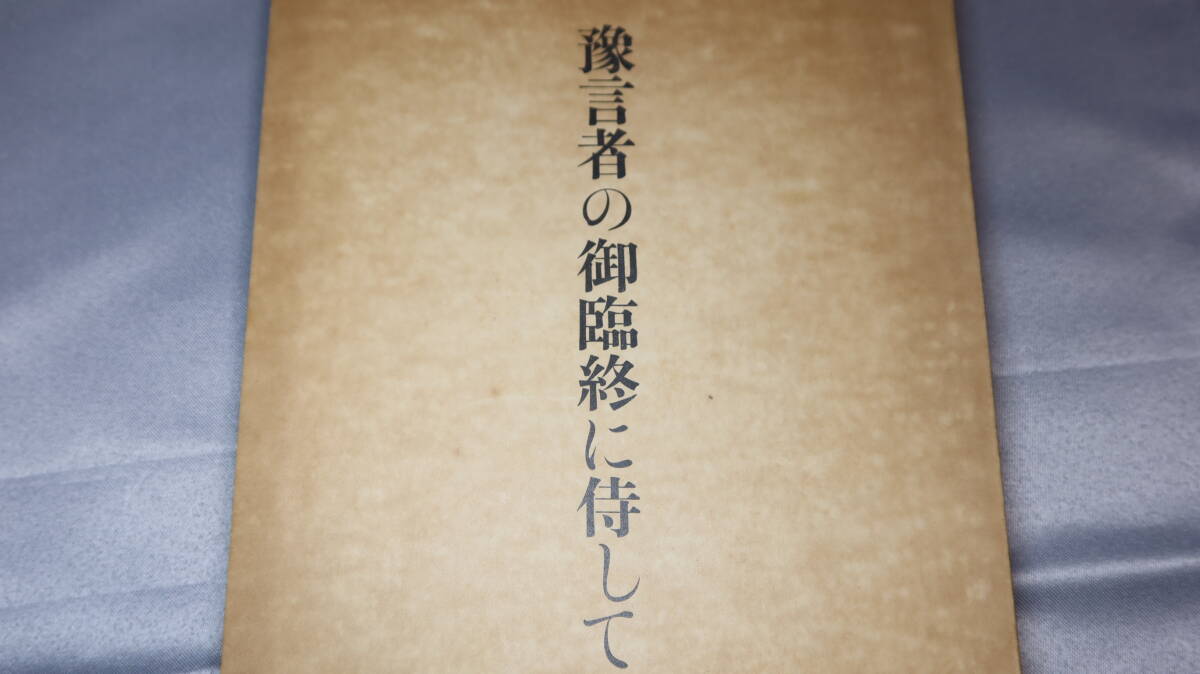 豫言者の御臨終に侍して